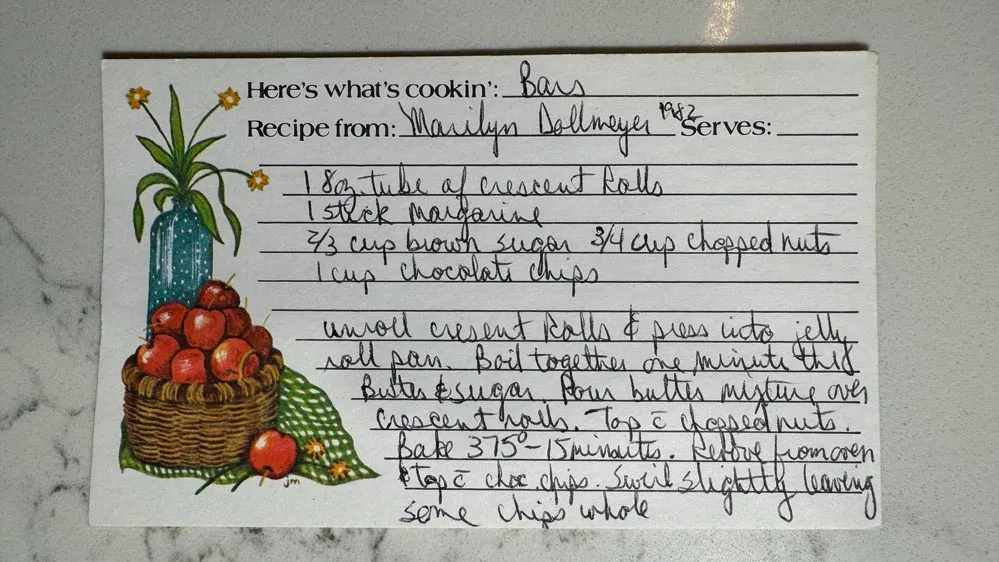 Here's what's cookin': Bars
Recipe from: Marilyn Dollmeyer 1982 Serves:
1 8oz. tube of crescent Rolls
1 stick margarine
2/3 cup brown sugar 3/4 cup chopped nuts
1 cup chocolate chips
unroll cresent Rolls & press into jelly
roll pan. Boil together one minute this
Butter & sugar. Pour butter mixture over
crescent rolls. Top c̄ chopped nuts.
Bake 375° - 15 minutes. Remove from oven
& top c̄ choc chips. Swirl slightly leaving
some chips whole
jm